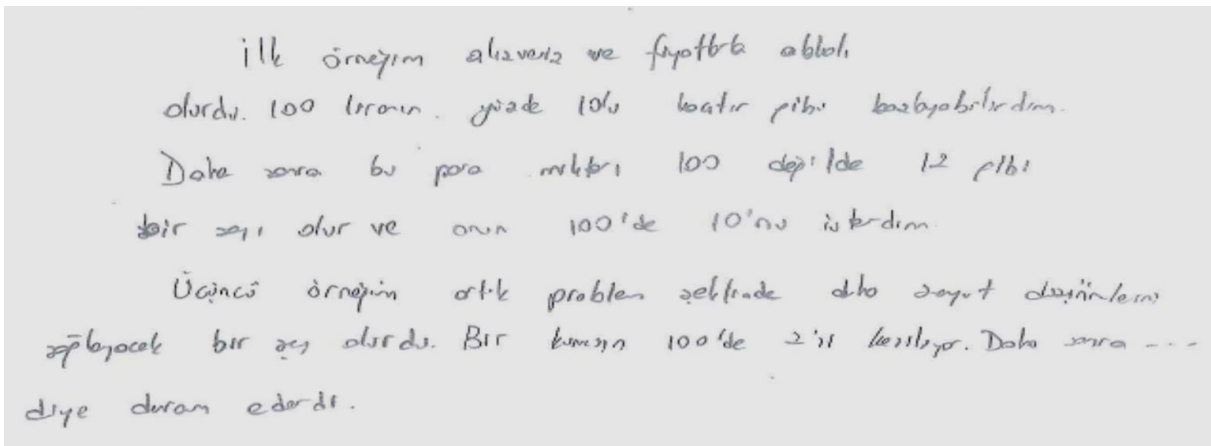 İlk örneğim alışveriş ve fiyatlarla alakalı
olurdu. 100 liranın. yüzde 10'u kaçtır gibi başlayabilirdim.
Daha sonra bu para miktarı 100 değilde 12 gibi
bir sayı olur ve onun 100'de 10'nu isterdim
Üçüncü örneğim artık problem şeklinde daha soyut düşünmelerini
sağlayacak bir şey olurdu. Bir kumaşın 100'de 2'si kesiliyor. Daha sonra ---
diye devam ederdi.